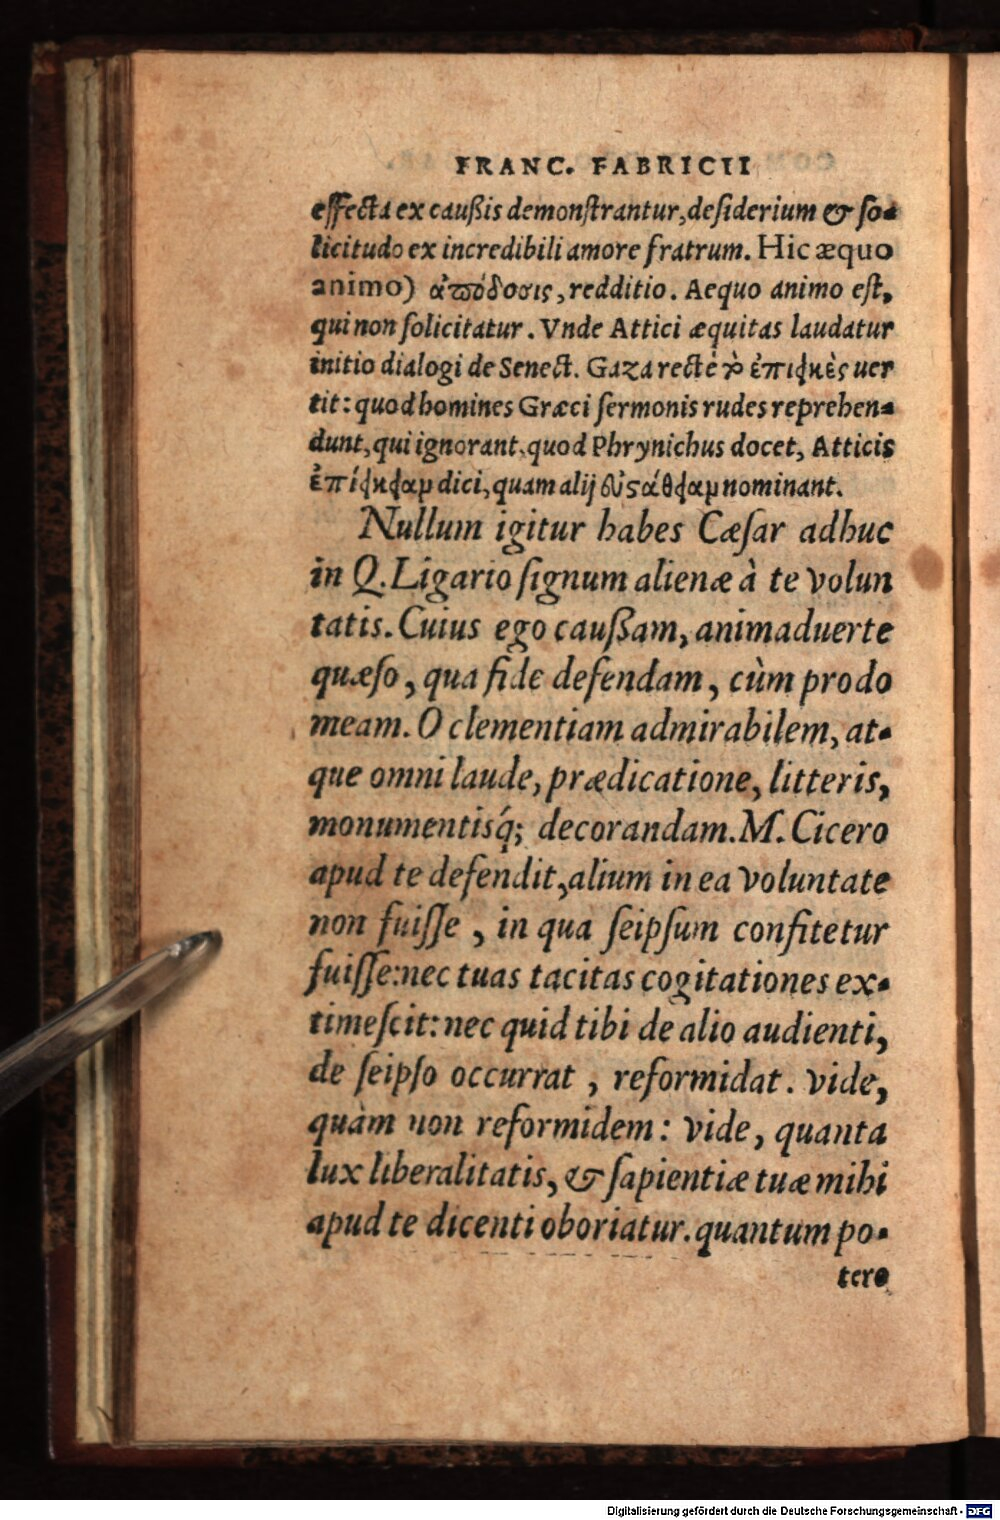 FRANC. FABRICII
effecta ex caußis demonſtrantur, deſiderium & ſo-
licitudo ex incredibili amore fratrum. Hic æquo
animo) ἀπόδοσις, redditio. Aequo animo eſt,
qui non ſolicitatur. Vnde Attici æquitas laudatur
initio dialogi de Senect. Gaza recte ἐπιεικὲς uer
tit: quod homines Græci ſermonis rudes reprehen-
dunt, qui ignorant, quod Phrynichus docet, Atticis
ἐπιείκειαν dici, quam alij εὐστάθειαν nominant.
Nullum igitur habes Cæſar adhuc
in Q. Ligario ſignum alienæ à te volun
tatis. Cuius ego caußam, animaduerte
quæſo, qua fide defendam, cùm prodo
meam. O clementiam admirabilem, at-
que omni laude, prædicatione, litteris,
monumentisq́; decorandam. M. Cicero
apud te defendit, alium in ea voluntate
non fuiſſe, in qua ſeipſum confitetur
fuiſſe: nec tuas tacitas cogitationes ex-
timeſcit: nec quid tibi de alio audienti,
de ſeipſo occurrat, reformidat. vide,
quàm non reformidem: vide, quanta
lux liberalitatis, & ſapientiæ tuæ mihi
apud te dicenti oboriatur. quantum po-
tero
Digitalisierung gefördert durch die Deutsche Forschungsgemeinschaft - DFG